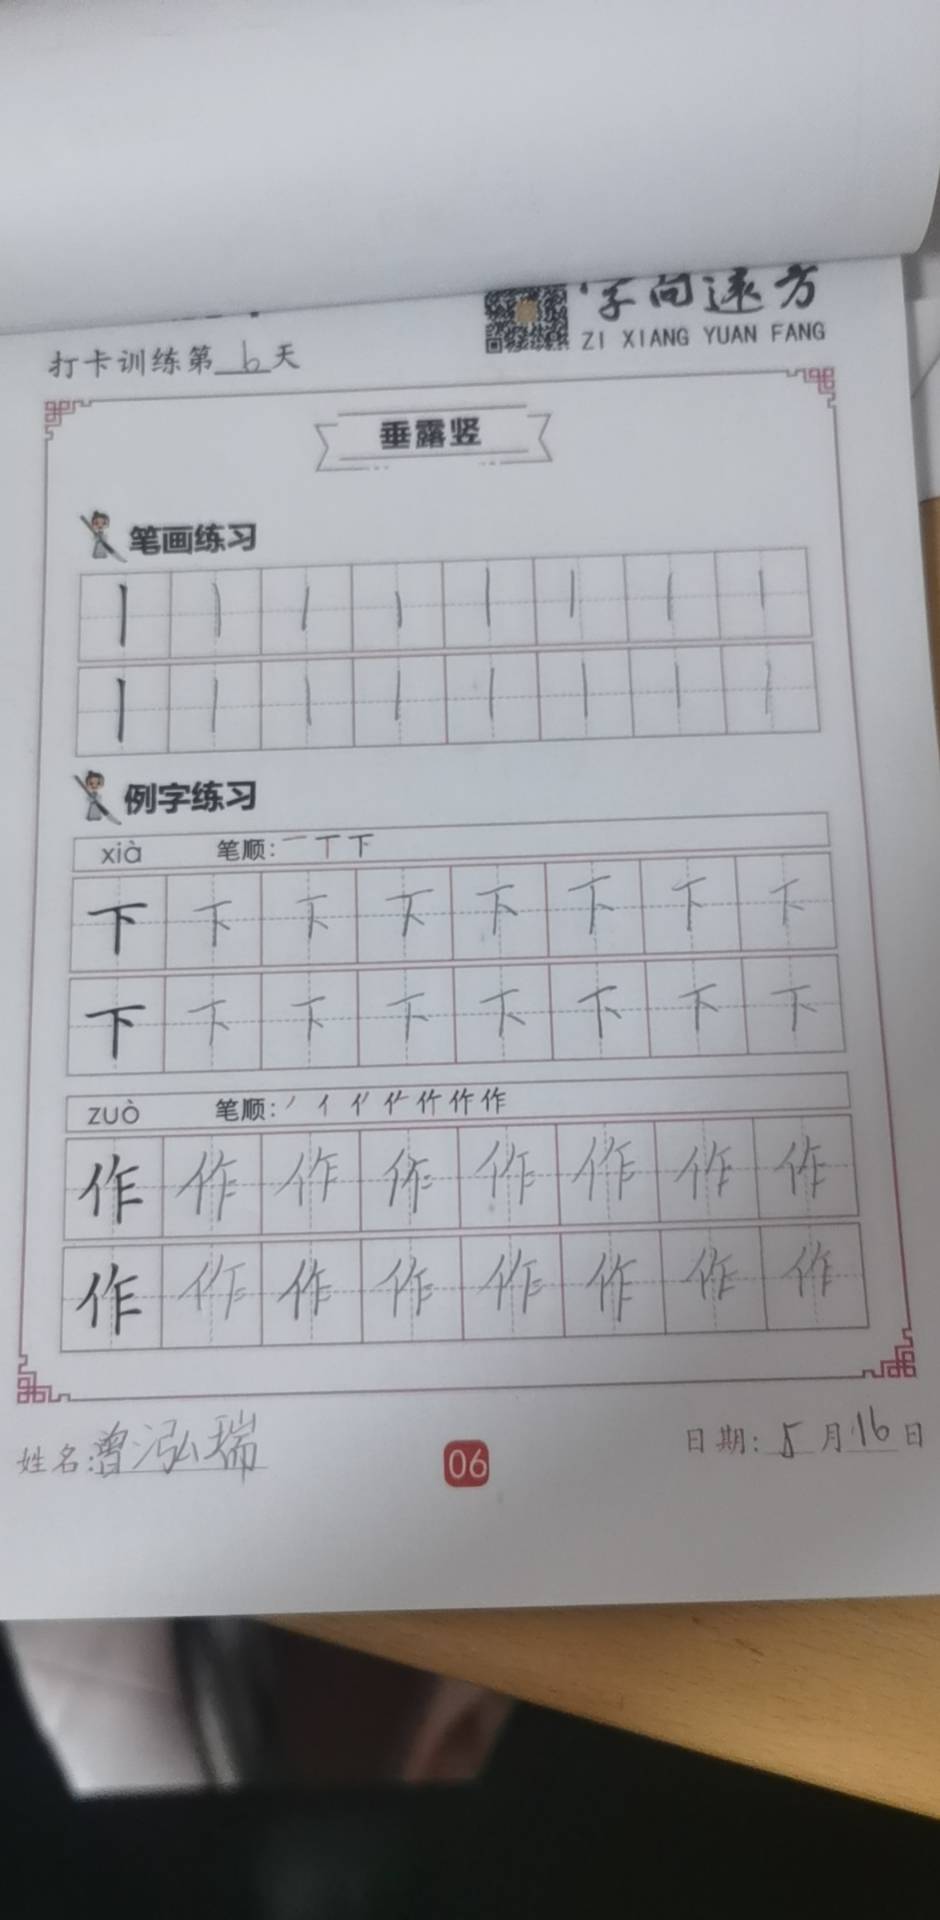 字向远方
ZI XIANG YUAN FANG
打卡训练第6天
垂露竖
笔画练习
丨 丨 丨 丨 丨 丨 丨 丨
丨 丨 丨 丨 丨 丨 丨 丨
例字练习
xià 笔顺: 一 丅 下
下 下 下 下 下 下 下 下
下 下 下 下 下 下 下 下
zuò 笔顺:
作 作 作 作 作 作 作 作
作 作 作 作 作 作 作 作
姓名:曾泓瑞 06 日期: 5 月 16 日